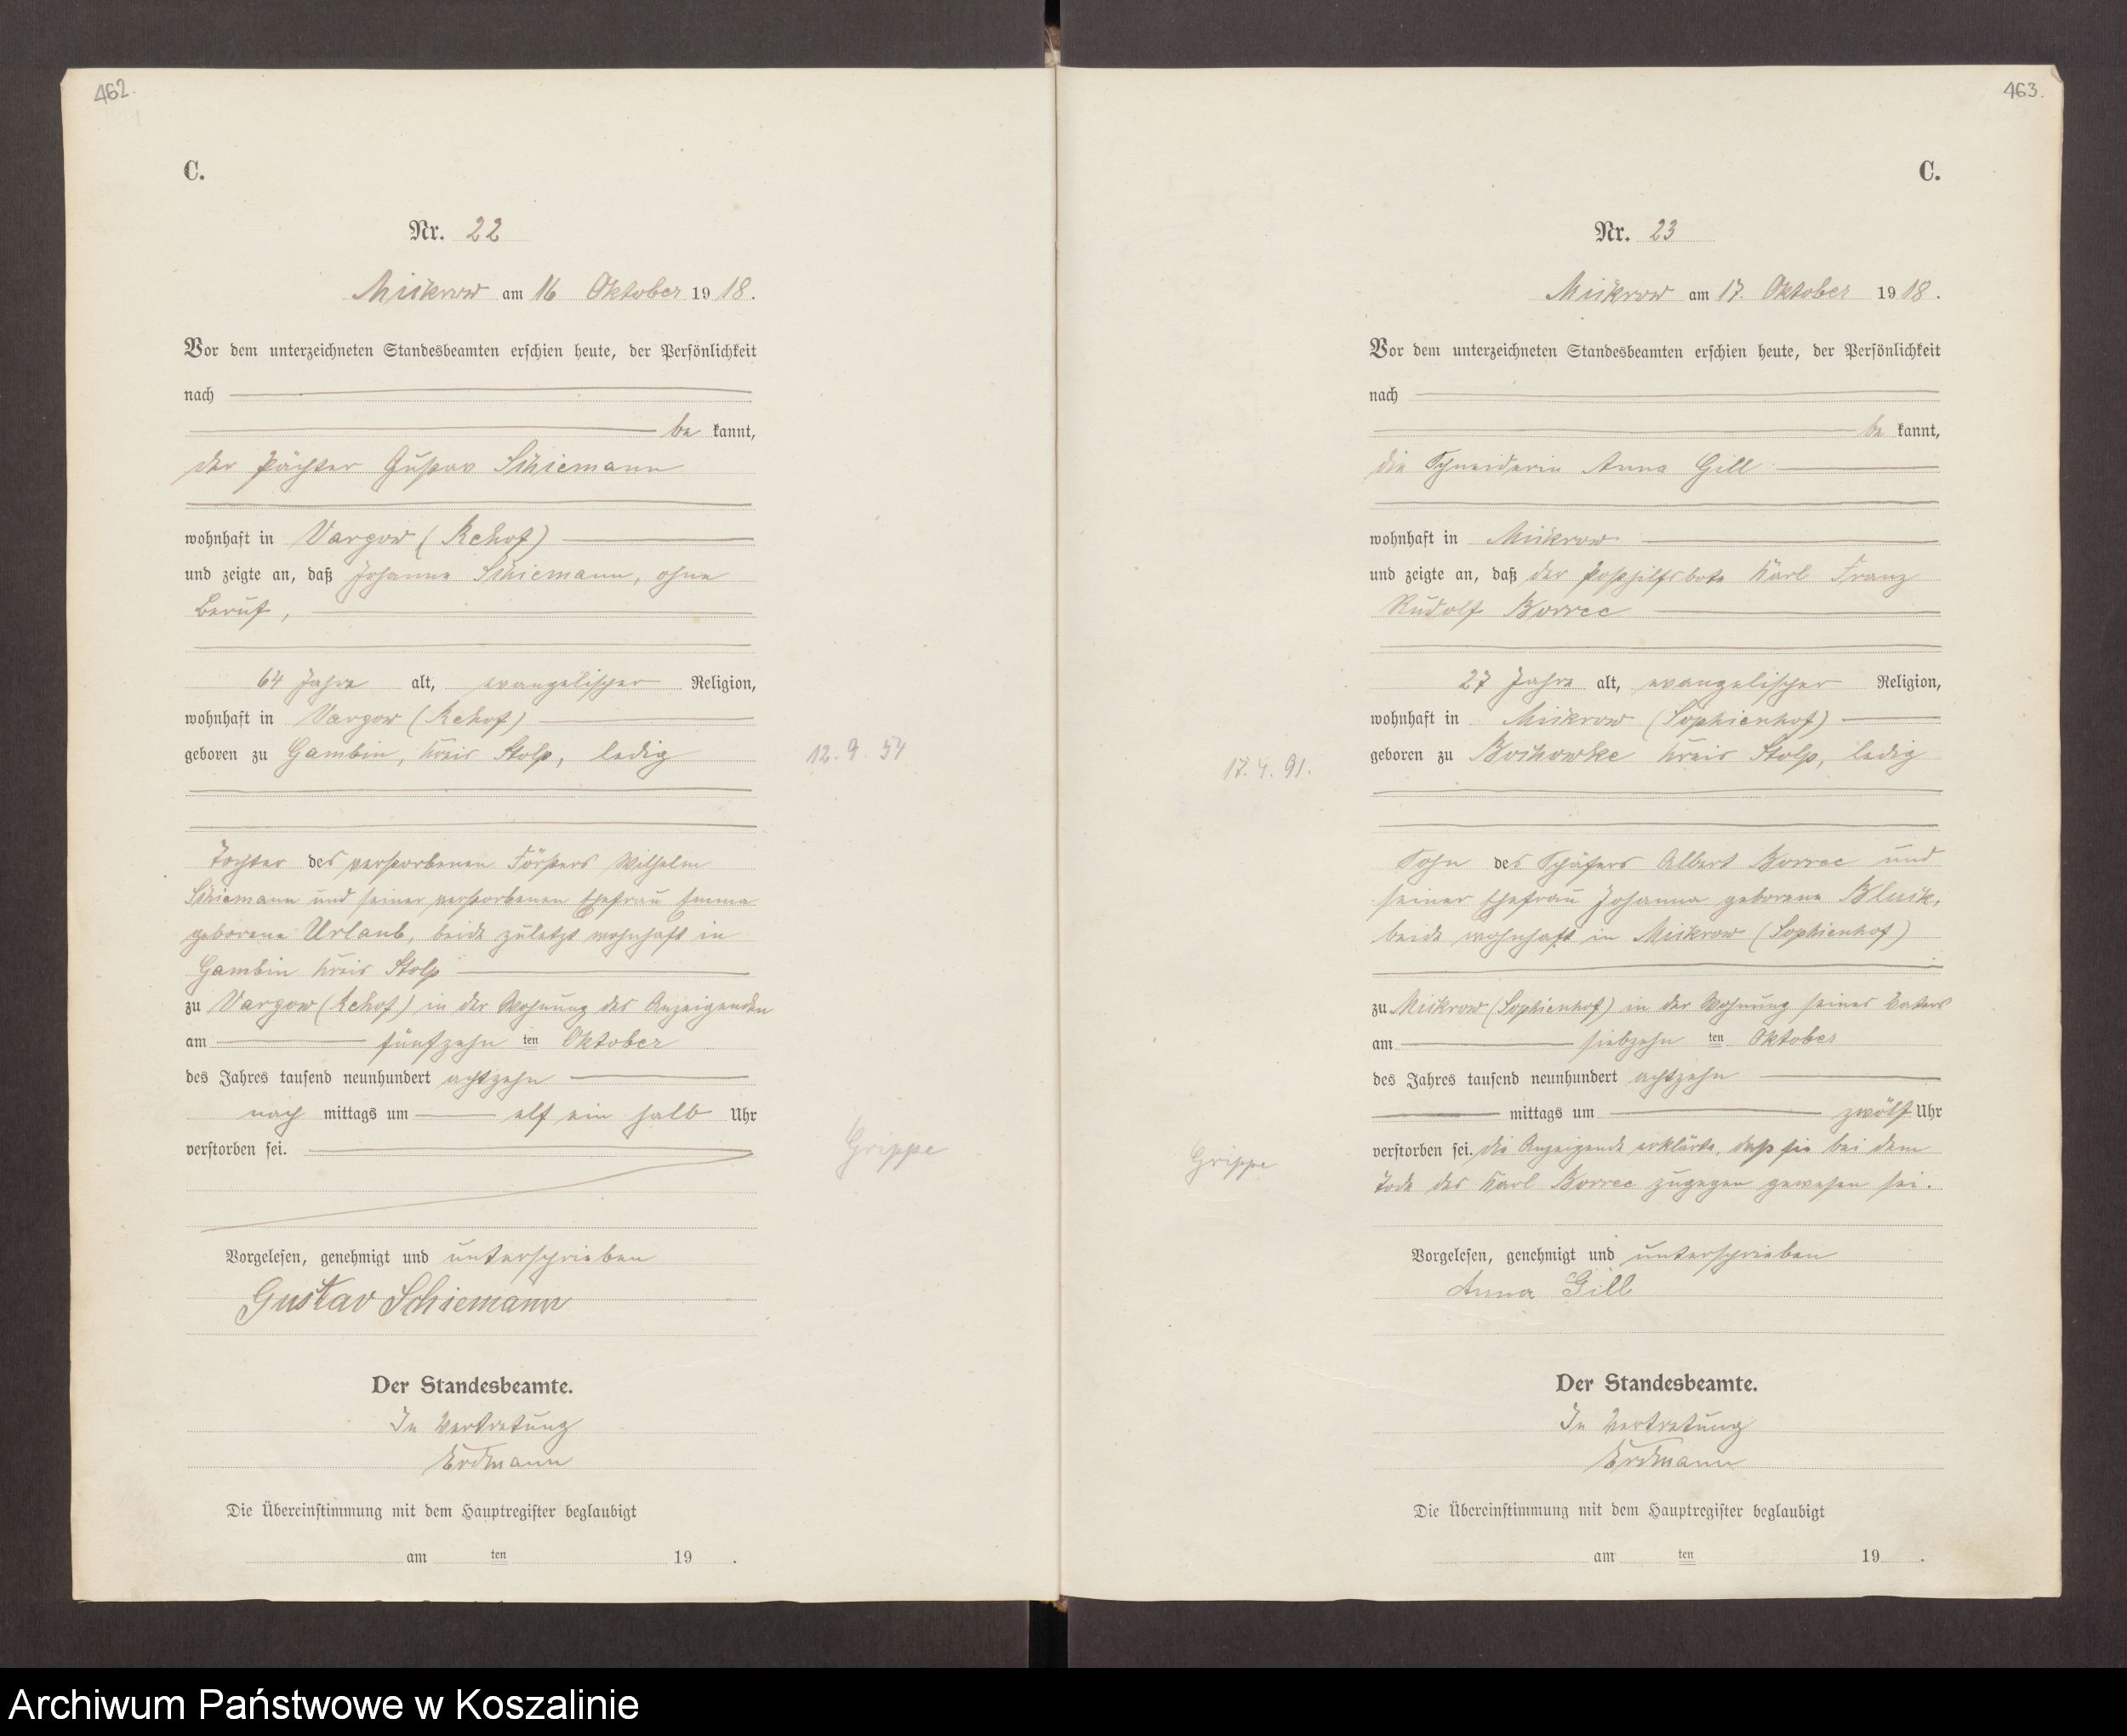 462.
C.
Nr. 22
Mikrow am 16 Oktober 1918.
Vor dem unterzeichneten Standesbeamten erschien heute, der Persönlichkeit
nach
be kannt,
der Pächter Gustav Schiemann
wohnhaft in Vargow (Rehof)
und zeigte an, daß Johanne Schiemann, ohne
Beruf,
64 Jahre alt, evangelischer Religion,
wohnhaft in Vargow (Rehof)
geboren zu Gambin, Kreis Stolp, ledig
12. 9. 54
Tochter des verstorbenen Försters Wilhelm
Schiemann und seiner verstorbenen Ehefrau Emma
geborene Urlaub, beide zuletzt wohnhaft in
Gambin Kreis Stolp
zu Vargow (Rehof) in der Wohnung des Anzeigenden
am fünfzehn ten Oktober
des Jahres tausend neunhundert achtzehn
nach mittags um elf ein halb Uhr
verstorben sei.
Grippe
Vorgelesen, genehmigt und unterschrieben
Gustav Schiemann
Der Standesbeamte.
In Vertretung
Erdmann
Die Übereinstimmung mit dem Hauptregister beglaubigt
am ten 19 .
463.
C.
Nr. 23
Mikrow am 17. Oktober 1918.
Vor dem unterzeichneten Standesbeamten erschien heute, der Persönlichkeit
nach
be kannt,
die Schneiderin Anna Gill
wohnhaft in Mikrow
und zeigte an, daß der Posthilfsbote Karl Franz
Rudolf Borrec
27 Jahre alt, evangelischer Religion,
wohnhaft in Mikrow (Sophienhof)
geboren zu Bochowke Kreis Stolp, ledig
17. 4. 91.
Sohn des Schäfers Albert Borrec und
seiner Ehefrau Johanna geborene
beide wohnhaft in Mikrow (Sophienhof)
zu Mikrow (Sophienhof) in der Wohnung seines Vaters
am siebzehn ten Oktober
des Jahres tausend neunhundert achtzehn
mittags um zwölf Uhr
verstorben sei. Die Anzeigende erklärte, daß sie bei dem
Tode des Karl Borrec zugegen gewesen sei.
Grippe
Vorgelesen, genehmigt und unterschrieben
Anna Gill
Der Standesbeamte.
In Vertretung
Erdmann
Die Übereinstimmung mit dem Hauptregister beglaubigt
am ten 19 .
Archiwum Państwowe w Koszalinie